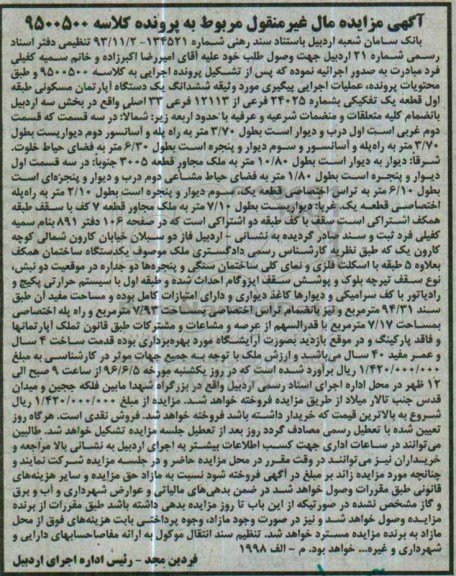 آگهی مزایده مال غیرمنقول مربوط به پرونده کلاسه ۹۵۰۰۵۰۰
بانک سامان شعبه اردبیل باستناد سند رهنی شماره ۱۳۴۵۲۱-۹۳/۱۱/۲ تنظیمی دفتر اسناد
رسمی شماره ۲۱ اردبیل جهت وصول طلب خود علیه آقای امیررضا اکبرزاده و خانم سمیه کفیلی
فرد مبادرت به صدور اجرائیه نموده که پس از تشکیل پرونده اجرایی به کلاسه ۹۵۰۰۵۰۰ و طبق
محتویات پرونده، عملیات اجرایی پیگیری مورد وثیقه ششدانگ یک دستگاه آپارتمان مسکونی طبقه
اول قطعه یک تفکیکی بشماره ۲۴۰۲۵ فرعی از ۱۲۱۱۳ فرعی از ۳۲ اصلی واقع در بخش سه اردبیل
بانضمام کلیه متعلقات و منضمات شرعیه و عرفیه با حدود اربعه زیر: شمالا: در سه قسمت که قسمت
دوم غربی است اول درب و دیوار است بطول ۲/۷۰ متر به راه پله و آسانسور دوم دیواریست بطول
۳/۷۰ متر به راه‌پله و آسانسور و سوم دیوار و پنجره است بطول ۶/۳۰ متر به فضای حیاط خلوت.
شرقا: دیوار به دیوار است بطول ۱۰/۸۰ متر به ملک مجاور قطعه ۳۰۰۵ جنوبا: در سه قسمت اول
دیوار و پنجره است بطول ۱/۸۰ متر به فضای حیاط مشاعی دوم درب و دیوار و پنجره‌ای است
بطول ۶/۱۰ متر به تراس اختصاصی قطعه یک، سوم دیوار و پنجره است بطول ۲/۱۰ متر به راه‌پله
اختصاصی قطعه یک. غربا: دیواریست بطول ۷/۱۰ متر به ملک مجاور قطعه ۷ کف با سقف طبقه
همکف اشتراکی است سقف با کف طبقه دو اشتراکی است که در صفحه ۱۰۶ دفتر ۸۹۱ بنام سمیه
کفیلی فرد ثبت و سند صادر گردیده به نشانی - اردبیل فاز دو سبلان خیابان کارون شمالی کوچه
کارون یک که طبق نظریه کارشناس رسمی دادگستری ملک موصوف یکدستگاه ساختمان همکف
بعلاوه ۵ طبقه با اسکلت فلزی و نمای کلی ساختمان سنگی و پنجره‌ها دو جداره در موقعیت دو نبش،
نوع سقف تیرچه بلوک و پوشش سقف ایزوگام احداث شده و طبقه اول با سیستم حرارتی پکیج و
رادیاتور با کف سرامیکی و دیوارها کاغذ دیواری و دارای امتیازات کامل بوده و مساحت مفید آن طبق
سند ۹۴/۳۱ مترمربع و نیز بانضمام تراس اختصاصی بمساحت ۷/۹۳ مترمربع و راه پله اختصاصی
بمساحت ۷/۱۷ مترمربع با قدرالسهم از عرصه و مشاعات و مشترکات طبق قانون تملک آپارتمانها
و فاقد پارکینگ و در موقع بازدید بصورت آرایشگاه مورد بهره‌برداری بوده قدمت ساخت ۴ سال
و عمر مفید ۴۰ سال می‌باشد و ارزش ملک با توجه به جمیع جهات موثر در کارشناسی به مبلغ
۱/۴۲۰/۰۰۰/۰۰۰ ریال برآورد شده است که در روز یکشنبه مورخه ۹۶/۶/۵ از ساعت ۹ صبح الی
۱۲ ظهر در محل اداره اجرای اسناد رسمی اردبیل واقع در بزرگراه شهدا مابین فلکه ججین و میدان
قدس جنب تالار میلاد از طریق مزایده فروخته خواهد شد. مزایده از مبلغ ۱/۴۲۰/۰۰۰/۰۰۰ ریال
شروع به بالاترین قیمت که خریدار داشته باشد فروخته خواهد شد. فروش نقدی است. هرگاه روز
تعیین شده با تعطیل رسمی مصادف گردد روز بعد از تعطیل جلسه مزایده تشکیل خواهد شد. طالبین
می‌توانند در ساعات اداری جهت کسب اطلاعات بیشتر به اجرای اردبیل به نشانی بالا مراجعه و
خریداران نیز می‌توانند در وقت مقرر در محل مزایده حاضر و در جلسه مزایده شرکت نمایند و
چنانچه مورد مزایده زائد بر مبلغ در آگهی فروخته شود نسبت به مازاد حق مزایده و سایر هزینه‌های
قانونی طبق مقررات وصول خواهد شد در ضمن بدهی‌های مالیاتی و عوارض شهرداری و آب و برق
و گاز مشخص نشده در صورتیکه از این باب تا روز مزایده بدهی داشته باشد طبق مقررات از برنده
مزایده وصول خواهد شد و نیز در صورت وجود مازاد، وجوه پرداختی بابت هزینه‌های فوق از محل
مازاد به برنده مزایده مسترد خواهد شد. تنظیم سند انتقال موکول به ارائه مفاصاحسابهای دارایی و
شهرداری و غیره... خواهد بود. م - الف ۱۹۹۸
فردین مجد - رئیس اداره اجرای اردبیل